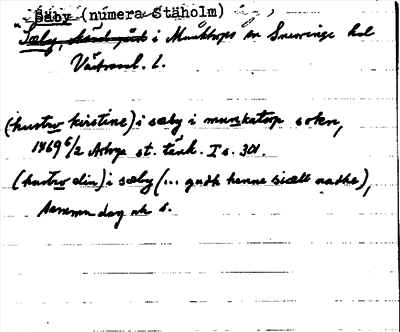 Säby (numera Stäholm)
Säby, i Munktorps sn Snevringe hd
Västmanl. l.
(hustrv kirstine) i sæby i munkatorp sokn,
1469 6/2 Arboga st. tänk. I s. 301.
(hustrv din) i sæby (... gudh henne siæll nadhe),
samma dag ok s.